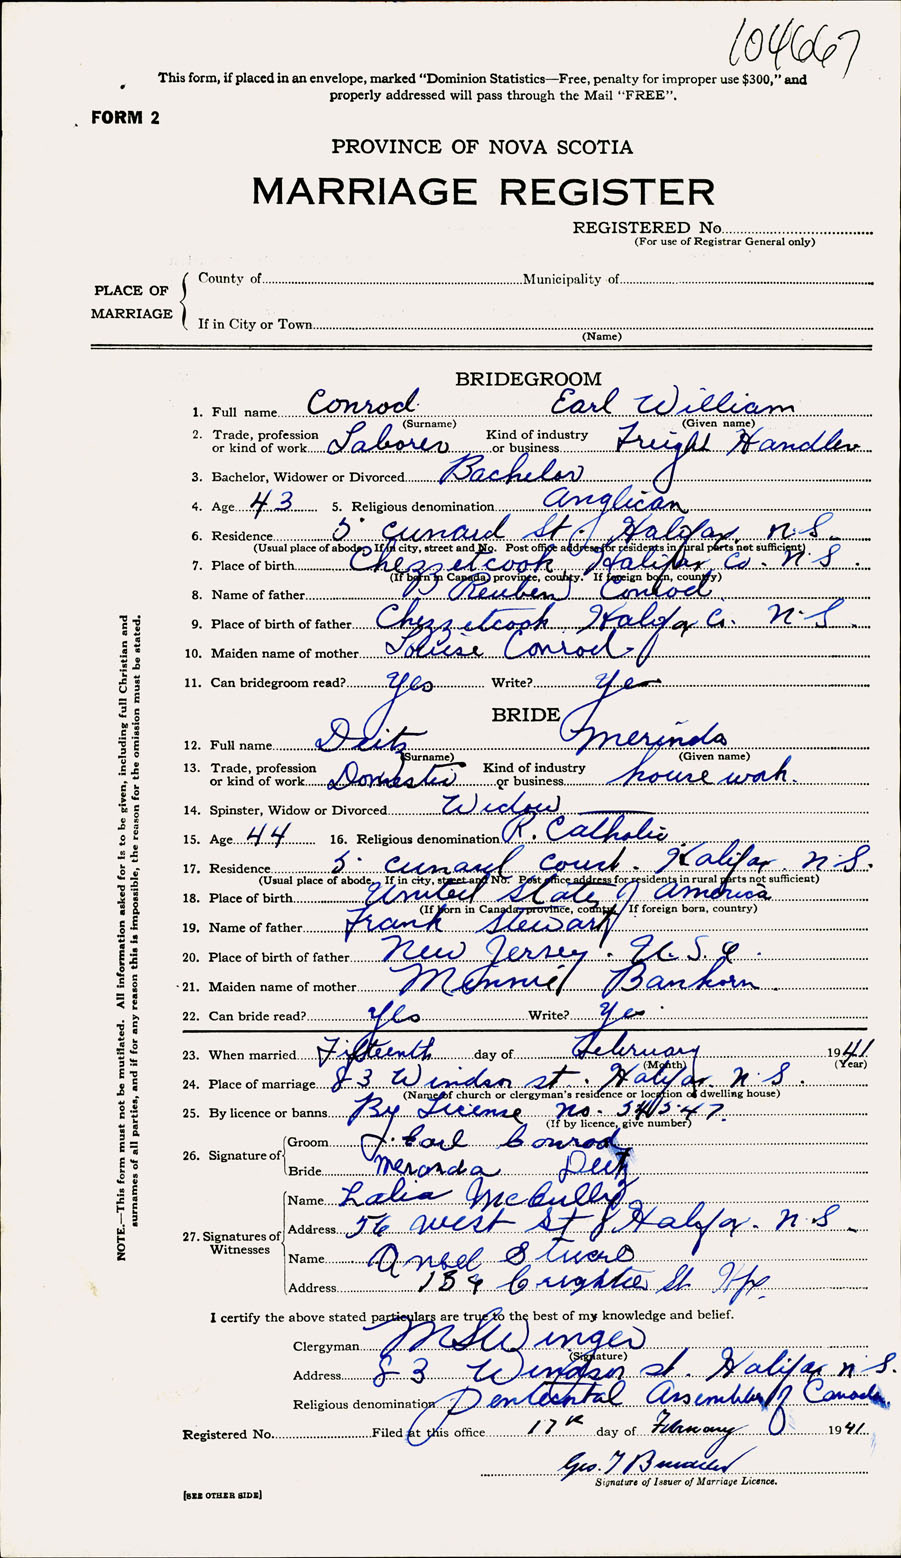 104667
This form, if placed in an envelope, marked "Dominion Statistics—Free, penalty for improper use $300," and
properly addressed will pass through the Mail "FREE".
FORM 2
PROVINCE OF NOVA SCOTIA
MARRIAGE REGISTER
REGISTERED No
(For use of Registrar General only)
PLACE OF MARRIAGE
County of Municipality of
If in City or Town
(Name)
BRIDEGROOM
1. Full name Conrod Earl William
(Surname) (Given name)
2. Trade, profession or kind of work Laborer Kind of industry or business Freight Handler
3. Bachelor, Widower or Divorced Bachelor
4. Age 43 5. Religious denomination Anglican
6. Residence 5 Cunard St. Halifax, N.S.
(Usual place of abode. If in city, street and No. Post office address for residents in rural parts not sufficient)
7. Place of birth Chezzetcook Halifax Co. N.S.
(If born in Canada, province, county. If foreign born, country)
8. Name of father Reuben Conrod
9. Place of birth of father Chezzetcook Halifax Co. N.S.
10. Maiden name of mother Louise Conrod
11. Can bridegroom read? Yes Write? Yes
BRIDE
12. Full name Deitz Merinda
(Surname) (Given name)
13. Trade, profession or kind of work Domestic Kind of industry or business house work.
14. Spinster, Widow or Divorced Widow
15. Age 44 16. Religious denomination R. Catholic
17. Residence 5 Cunard Court. Halifax N.S.
(Usual place of abode. If in city, street and No. Post office address for residents in rural parts not sufficient)
18. Place of birth United States of America
(If born in Canada, province, county. If foreign born, country)
19. Name of father Frank Stewart
20. Place of birth of father New Jersey. U.S.A.
21. Maiden name of mother Minnie Bankorn
22. Can bride read? Yes Write? Yes
23. When married Fifteenth day of February 1941
(Month) (Year)
24. Place of marriage 83 Windsor St. Halifax N.S.
(Name of church or clergyman's residence or location of dwelling house)
25. By licence or banns By License No. 54547
(If by licence, give number)
26. Signature of
Groom Earl Conrod
Bride Meranda Deitz
27. Signatures of Witnesses
Name Lalia McCully
Address 56 West St Halifax. N.S.
Name
Address 139 Creighton St. Hfx.
I certify the above stated particulars are true to the best of my knowledge and belief.
Clergyman M S Winger
(Signature)
Address 83 Windsor St. Halifax N.S.
Religious denomination Pentecostal Assembly of Canada.
Registered No. Filed at this office 17th day of February 1941.
Geo. T
Signature of Issuer of Marriage Licence.
[SEE OTHER SIDE]
NOTE.—This form must not be mutilated. All information asked for is to be given, including full Christian and
surnames of all parties, and if for any reason this is impossible, the reason for the omission must be stated.